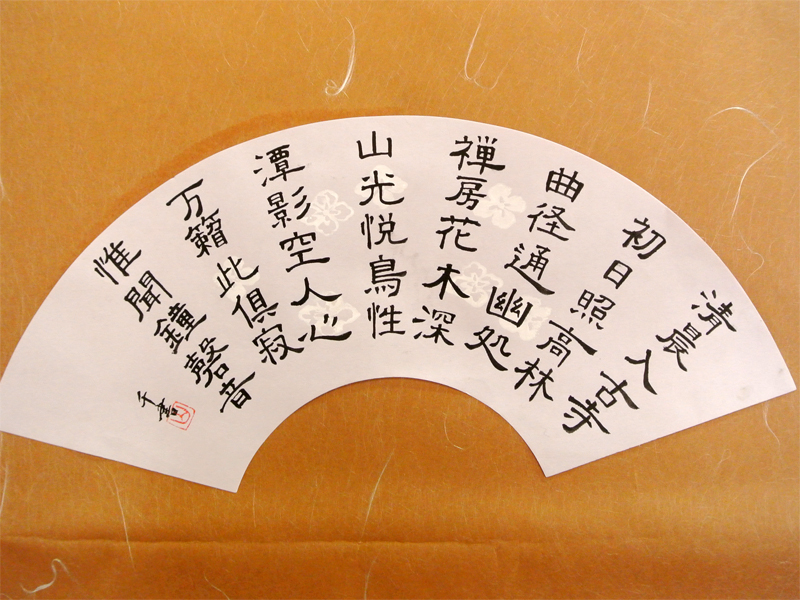 清晨入古寺
初日照高林
曲径通幽処
禅房花木深
山光悦鳥性
潭影空人心
万籟此俱寂
惟聞鐘磬音